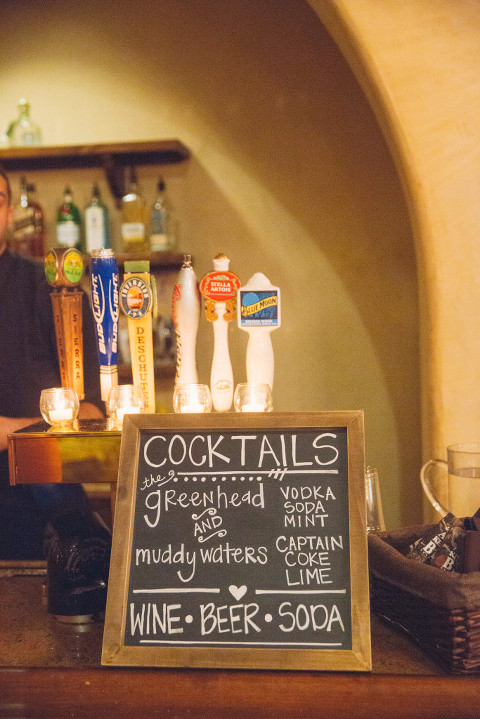 SIERRA
BUD LIGHT
DESCHUTES
STELLA
ARTOIS
BLUE MOON
COCKTAILS
the
greenhead
AND
muddy waters
VODKA
SODA
MINT
CAPTAIN
COKE
LIME
WINE • BEER • SODA